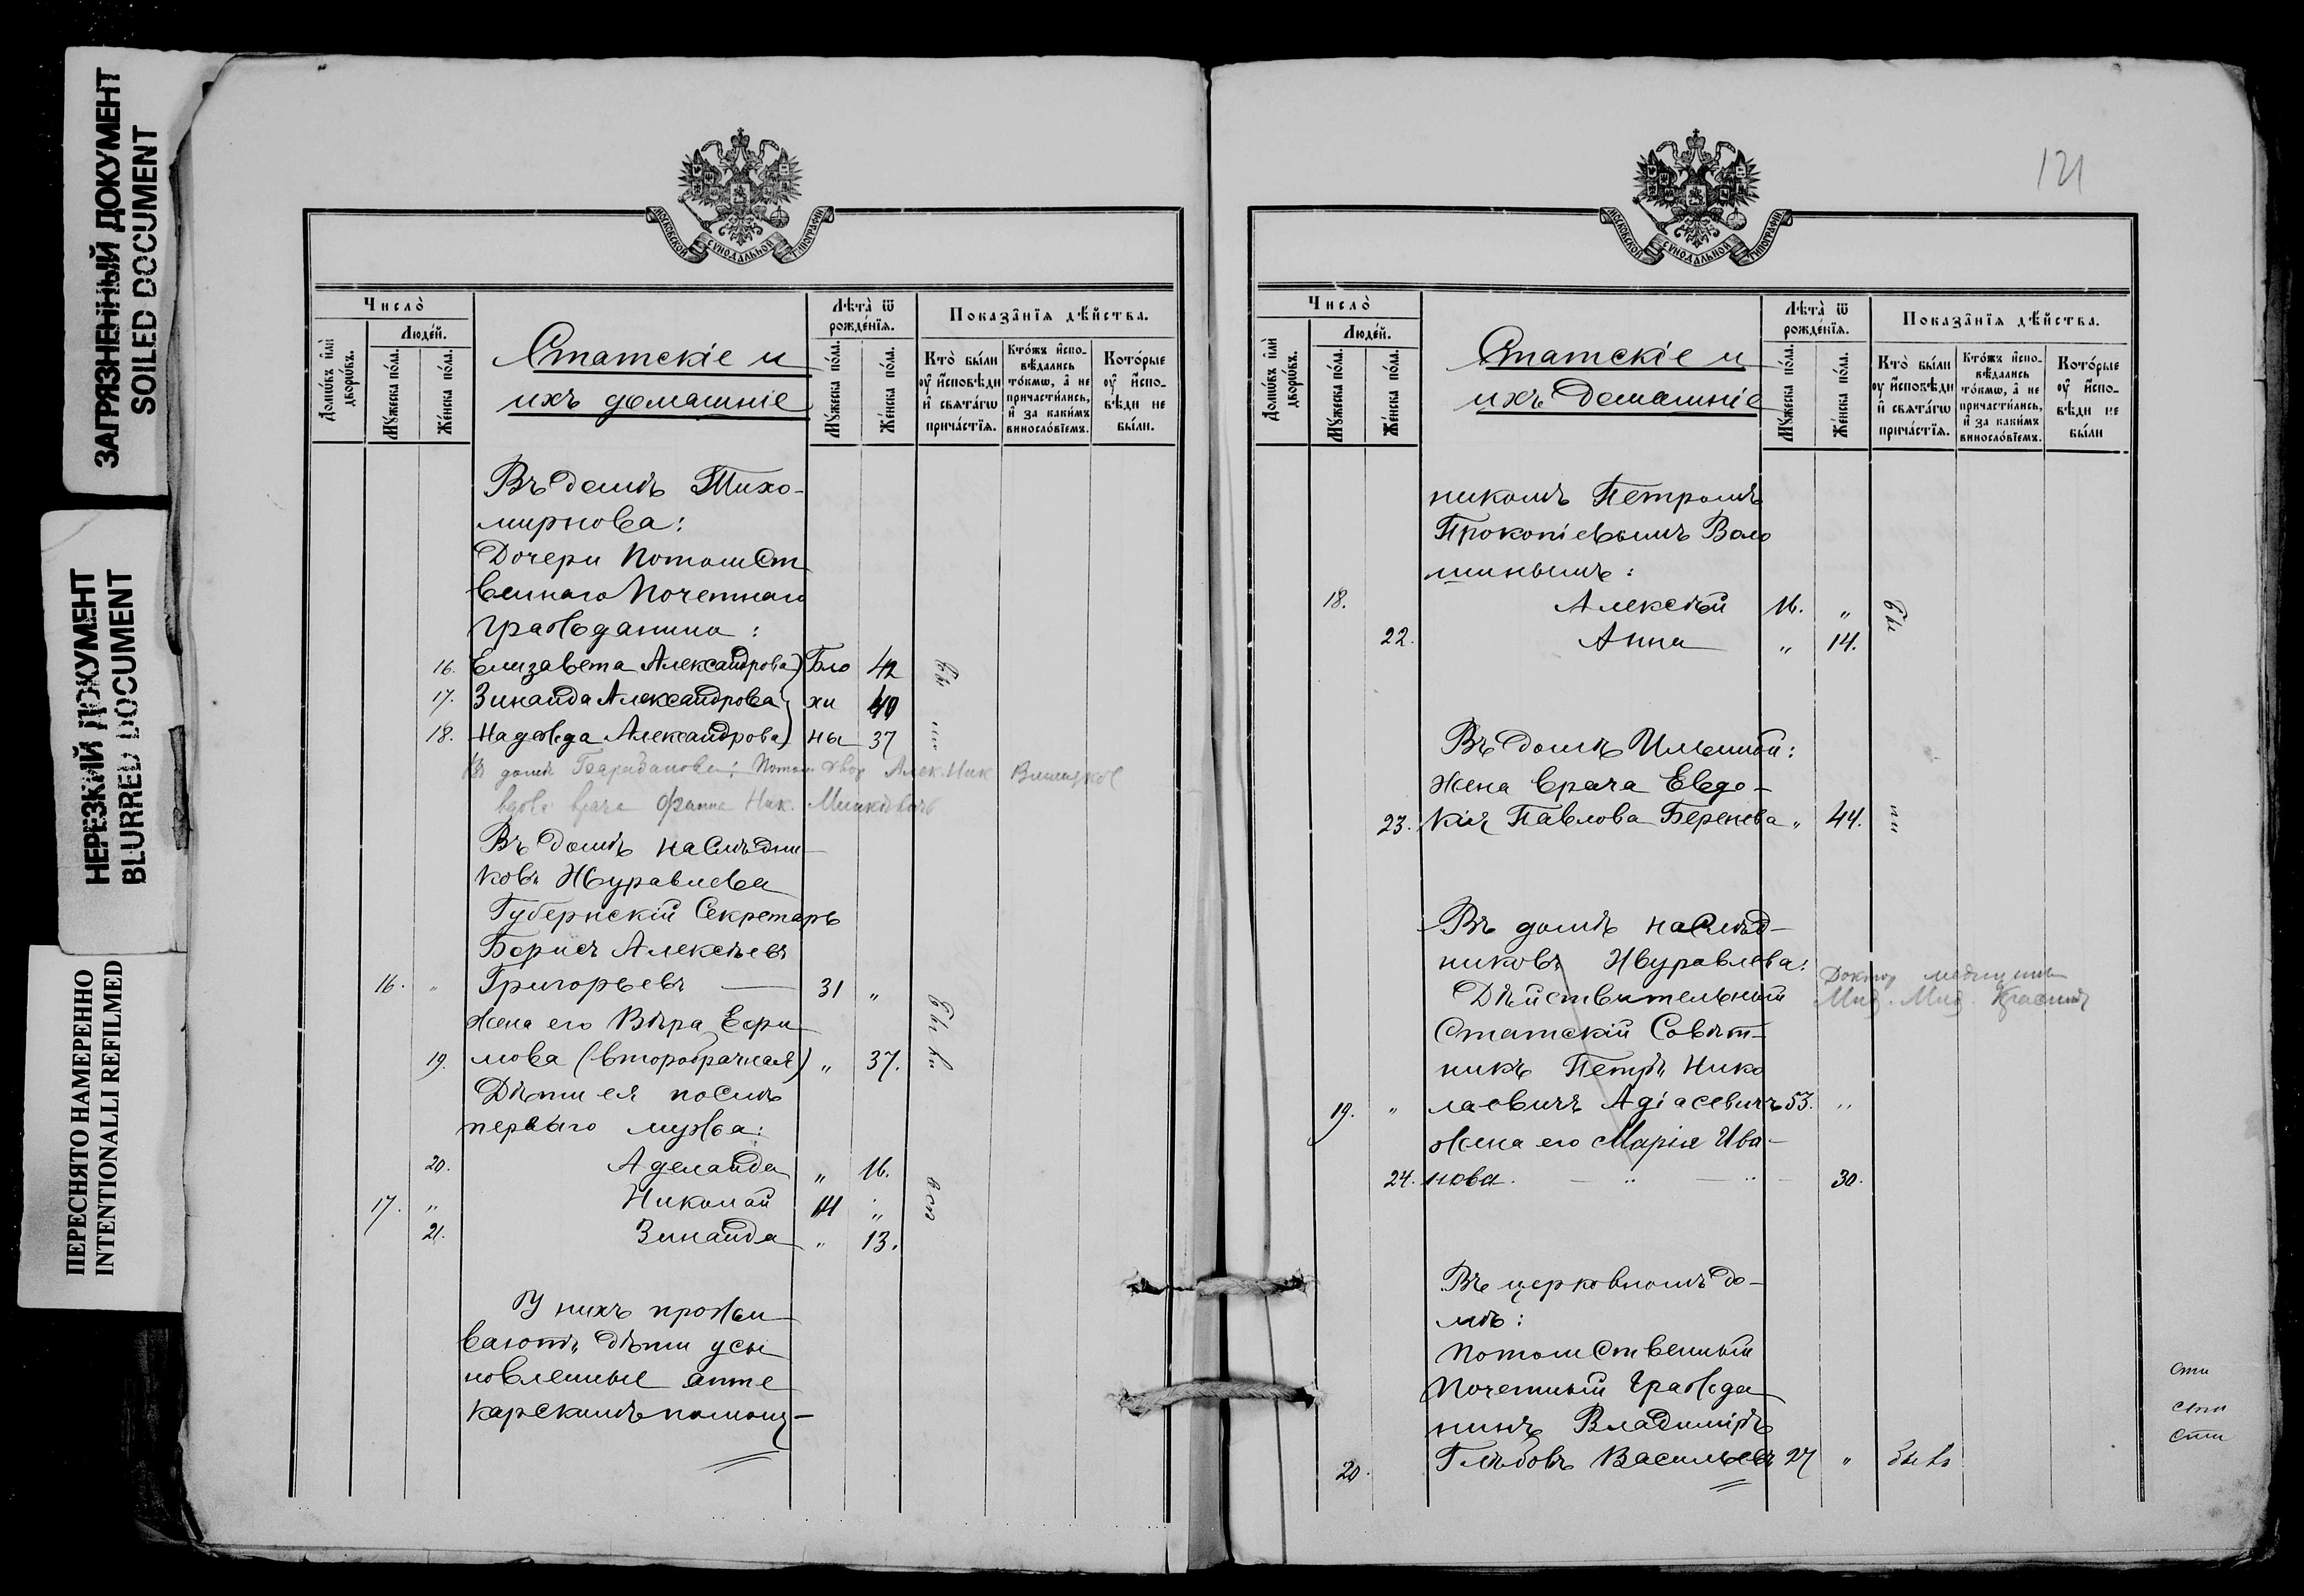 ЗАГРЯЗНЕННЫЙ ДОКУМЕНТ
SOILED DOCUMENT
НЕРЕЗКИЙ ДОКУМЕНТ
BLURRED DOCUMENT
ПЕРЕСНЯТО НАМЕРЕННО
INTENTIONALLI REFILMED
МОСКОВСКОЙ СѴНОДАЛЬНОЙ ТИПОГРАФІИ
Число̀
Людéй.
Домѡ́въ и҆лѝ дворѡ́въ.
Мꙋ́жеска по́ла.
Же́нска по́ла.
Статскіе и
ихъ домашніе
Лѣта̀ ѿ рожде́нїѧ.
Мꙋ́жеска по́ла.
Же́нска по́ла.
Показа̑нїѧ дѣ́йства.
Кто̀ бы́ли ᲂу҆ и҆сповѣ́ди и҆ свѧта́гѡ прича́стїѧ.
Кто́жъ и҆сповѣ́дались то́кмѡ, а҆ не причасти́лись, и҆ за каки́мъ винословїемъ.
Кото́рые ᲂу҆ и҆спо-вѣ́ди не бы́ли.
Въ домѣ Тихо-
мирнова:
Дочери Потомст
веннаго Почетнаго
Гражданина:
16. Елизавета Александрова) Бло 42
17. Зинаида Александрова хи 40
18. Надежда Александрова) ны 37
Въ домѣ наслѣдни
ковъ Журавлева
Губернскій Секретарь
Борисъ Алексѣевъ
16. " Григорьевъ — 31 "
Жена его Вѣра Ефри
19. мова (второбрачная) " 37.
Дѣти ея послѣ
перваго мужа:
20. Аделаида " 16.
17. " Николай 14 "
21. Зинаида " 13.
У нихъ прожи
ваютъ дѣти усы
новленные апте
карскимъ помощ-
121
МОСКОВСКОЙ СѴНОДАЛЬНОЙ ТИПОГРАФІИ
Число̀
Людéй.
Домѡ́въ и҆лѝ дворѡ́въ.
Мꙋ́жеска по́ла.
Же́нска по́ла.
Статскіе и
ихъ домашніе
Лѣта̀ ѿ рожде́нїѧ.
Мꙋ́жеска по́ла.
Же́нска по́ла.
Показа̑нїѧ дѣ́йства.
Кто̀ бы́ли ᲂу҆ и҆сповѣ́ди и҆ свѧта́гѡ прича́стїѧ.
Кто́жъ и҆сповѣ́дались то́кмѡ, а҆ не причасти́лись, и҆ за каки́мъ винословїемъ.
Кото́рые ᲂу҆ и҆спо-вѣ́ди не бы́ли
никомъ Петромъ
Прокопіевымъ Воло
шинымъ:
18. Алексѣй 16. " бы
22. Анна " 14.
Въ домѣ Ильиной:
Жена врача Евдо-
23. кія Павлова Беренева " 44.
Въ домѣ наслѣд-
никовъ Журавлева:
Доктор медицины
Дѣйствительный
Статскій Совѣт-
никъ Петръ Нико
19. " лаевичъ Адіасевичъ 53. "
Жена его Марія Ива-
24. нова. 30.
Въ церковномъ до-
мѣ:
Потомственный
Почетный Гражда
нинъ Владиміръ
20. Глѣбовъ Васильевъ 27 " бывъ